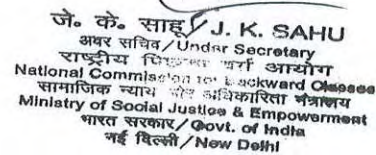 जे. के. साहू/J. K. SAHU
अवर सचिव/Under Secretary
राष्ट्रीय पिछड़ा वर्ग आयोग
National Commission for Backward Classes
सामाजिक न्याय और अधिकारिता मंत्रालय
Ministry of Social Justice & Empowerment
भारत सरकार/Govt. of India
नई दिल्ली/New Delhi